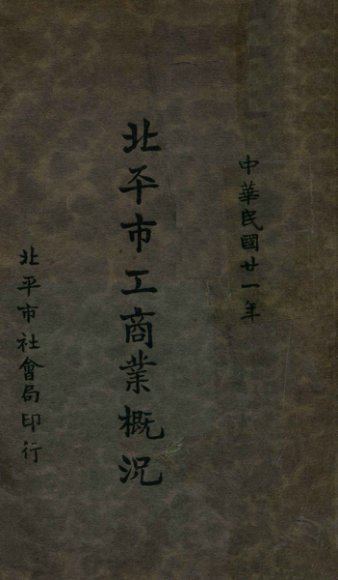 中華民國廿一年
北平市工商業概況
北平市社會局印行